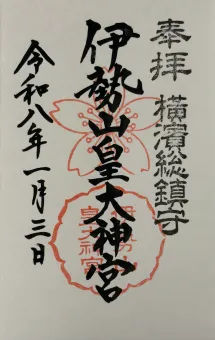 奉拝
横濱総鎮守
伊勢山皇大神宮
伊勢山
皇大神宮
令和八年一月三日